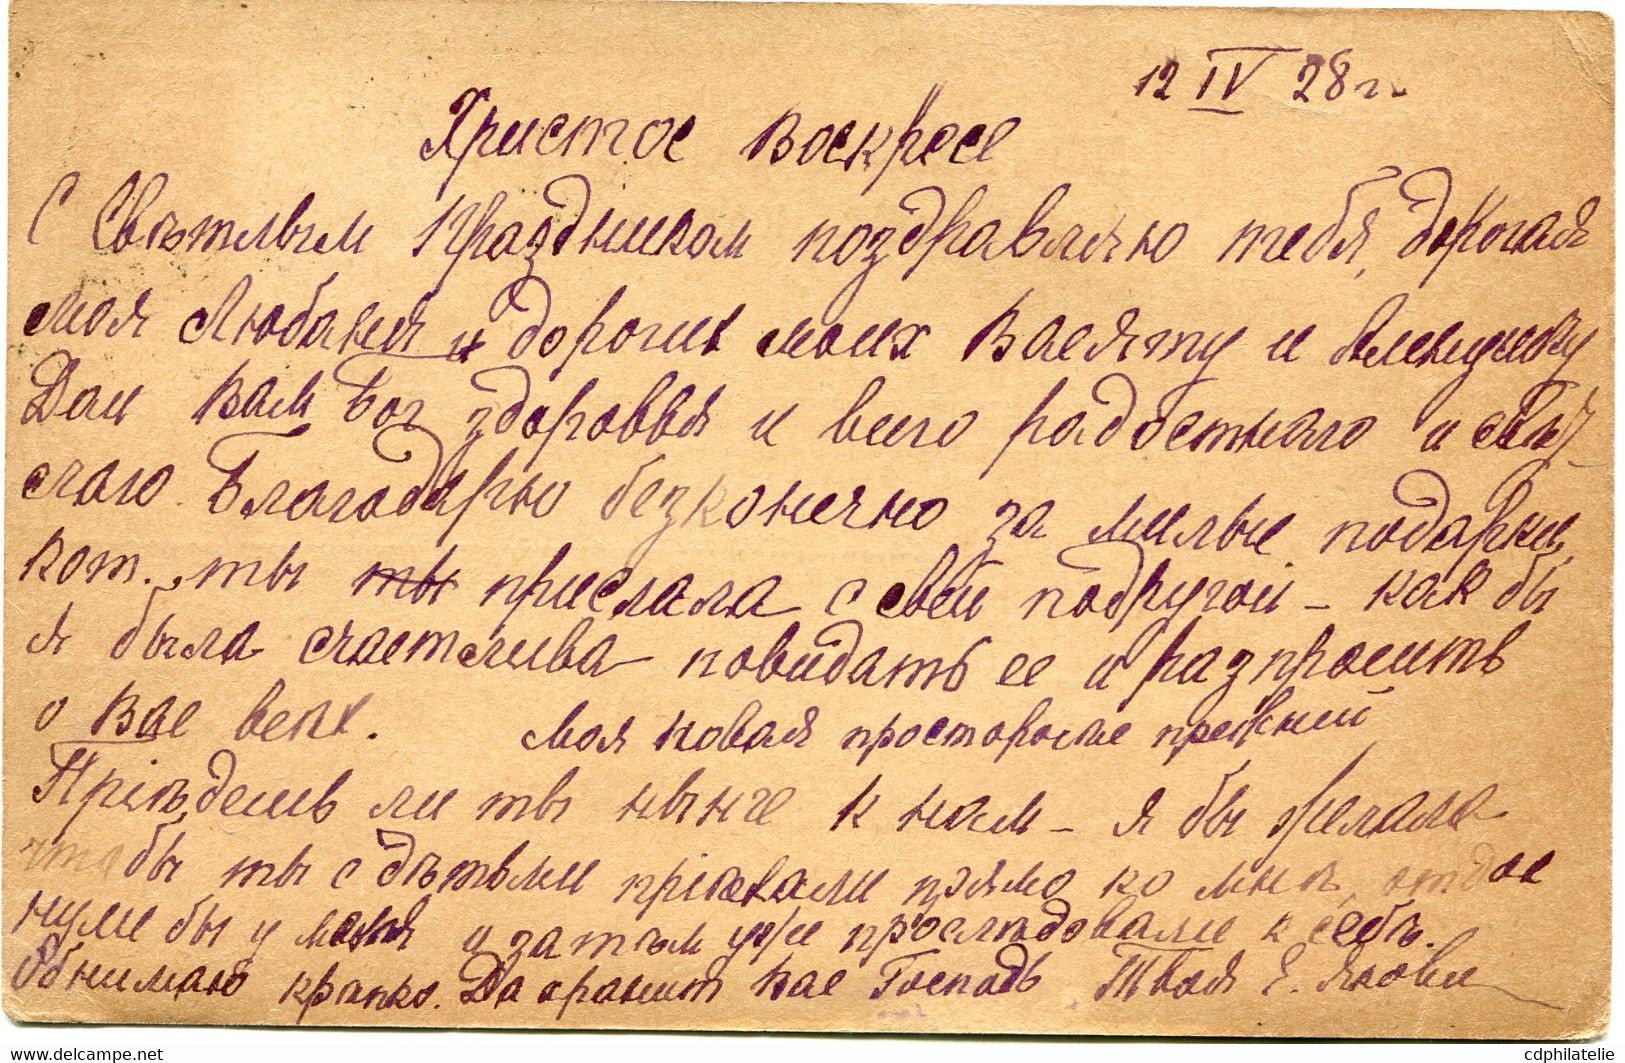 12 IV 28 г.
Христос Воскресе
С Свѣтлым Праздником поздравляю тебя, дорогая
моя Любаня и дорогих моих Васяту и
Дай Вам Бог здоровья и всего радостного и свѣт
лаго. Благодарю безконечно за милые подарки,
кот. ты ты прислала с своей подругой – как бы
я была счастлива повидать ее и разпросить
о Вас всѣх. Моя новая просторнѣе прежней
Пріѣдешь ли ты нынче к нам – я бы желала
чтобы ты с дѣтьми пріѣхали прямо ко мнѣ, отдох
нули бы у меня и затѣм уже прослѣдовали к себѣ.
Обнимаю крѣпко. Да хранит Вас Господь Твоя Е.
www.delcampe.net
cdphilatelie